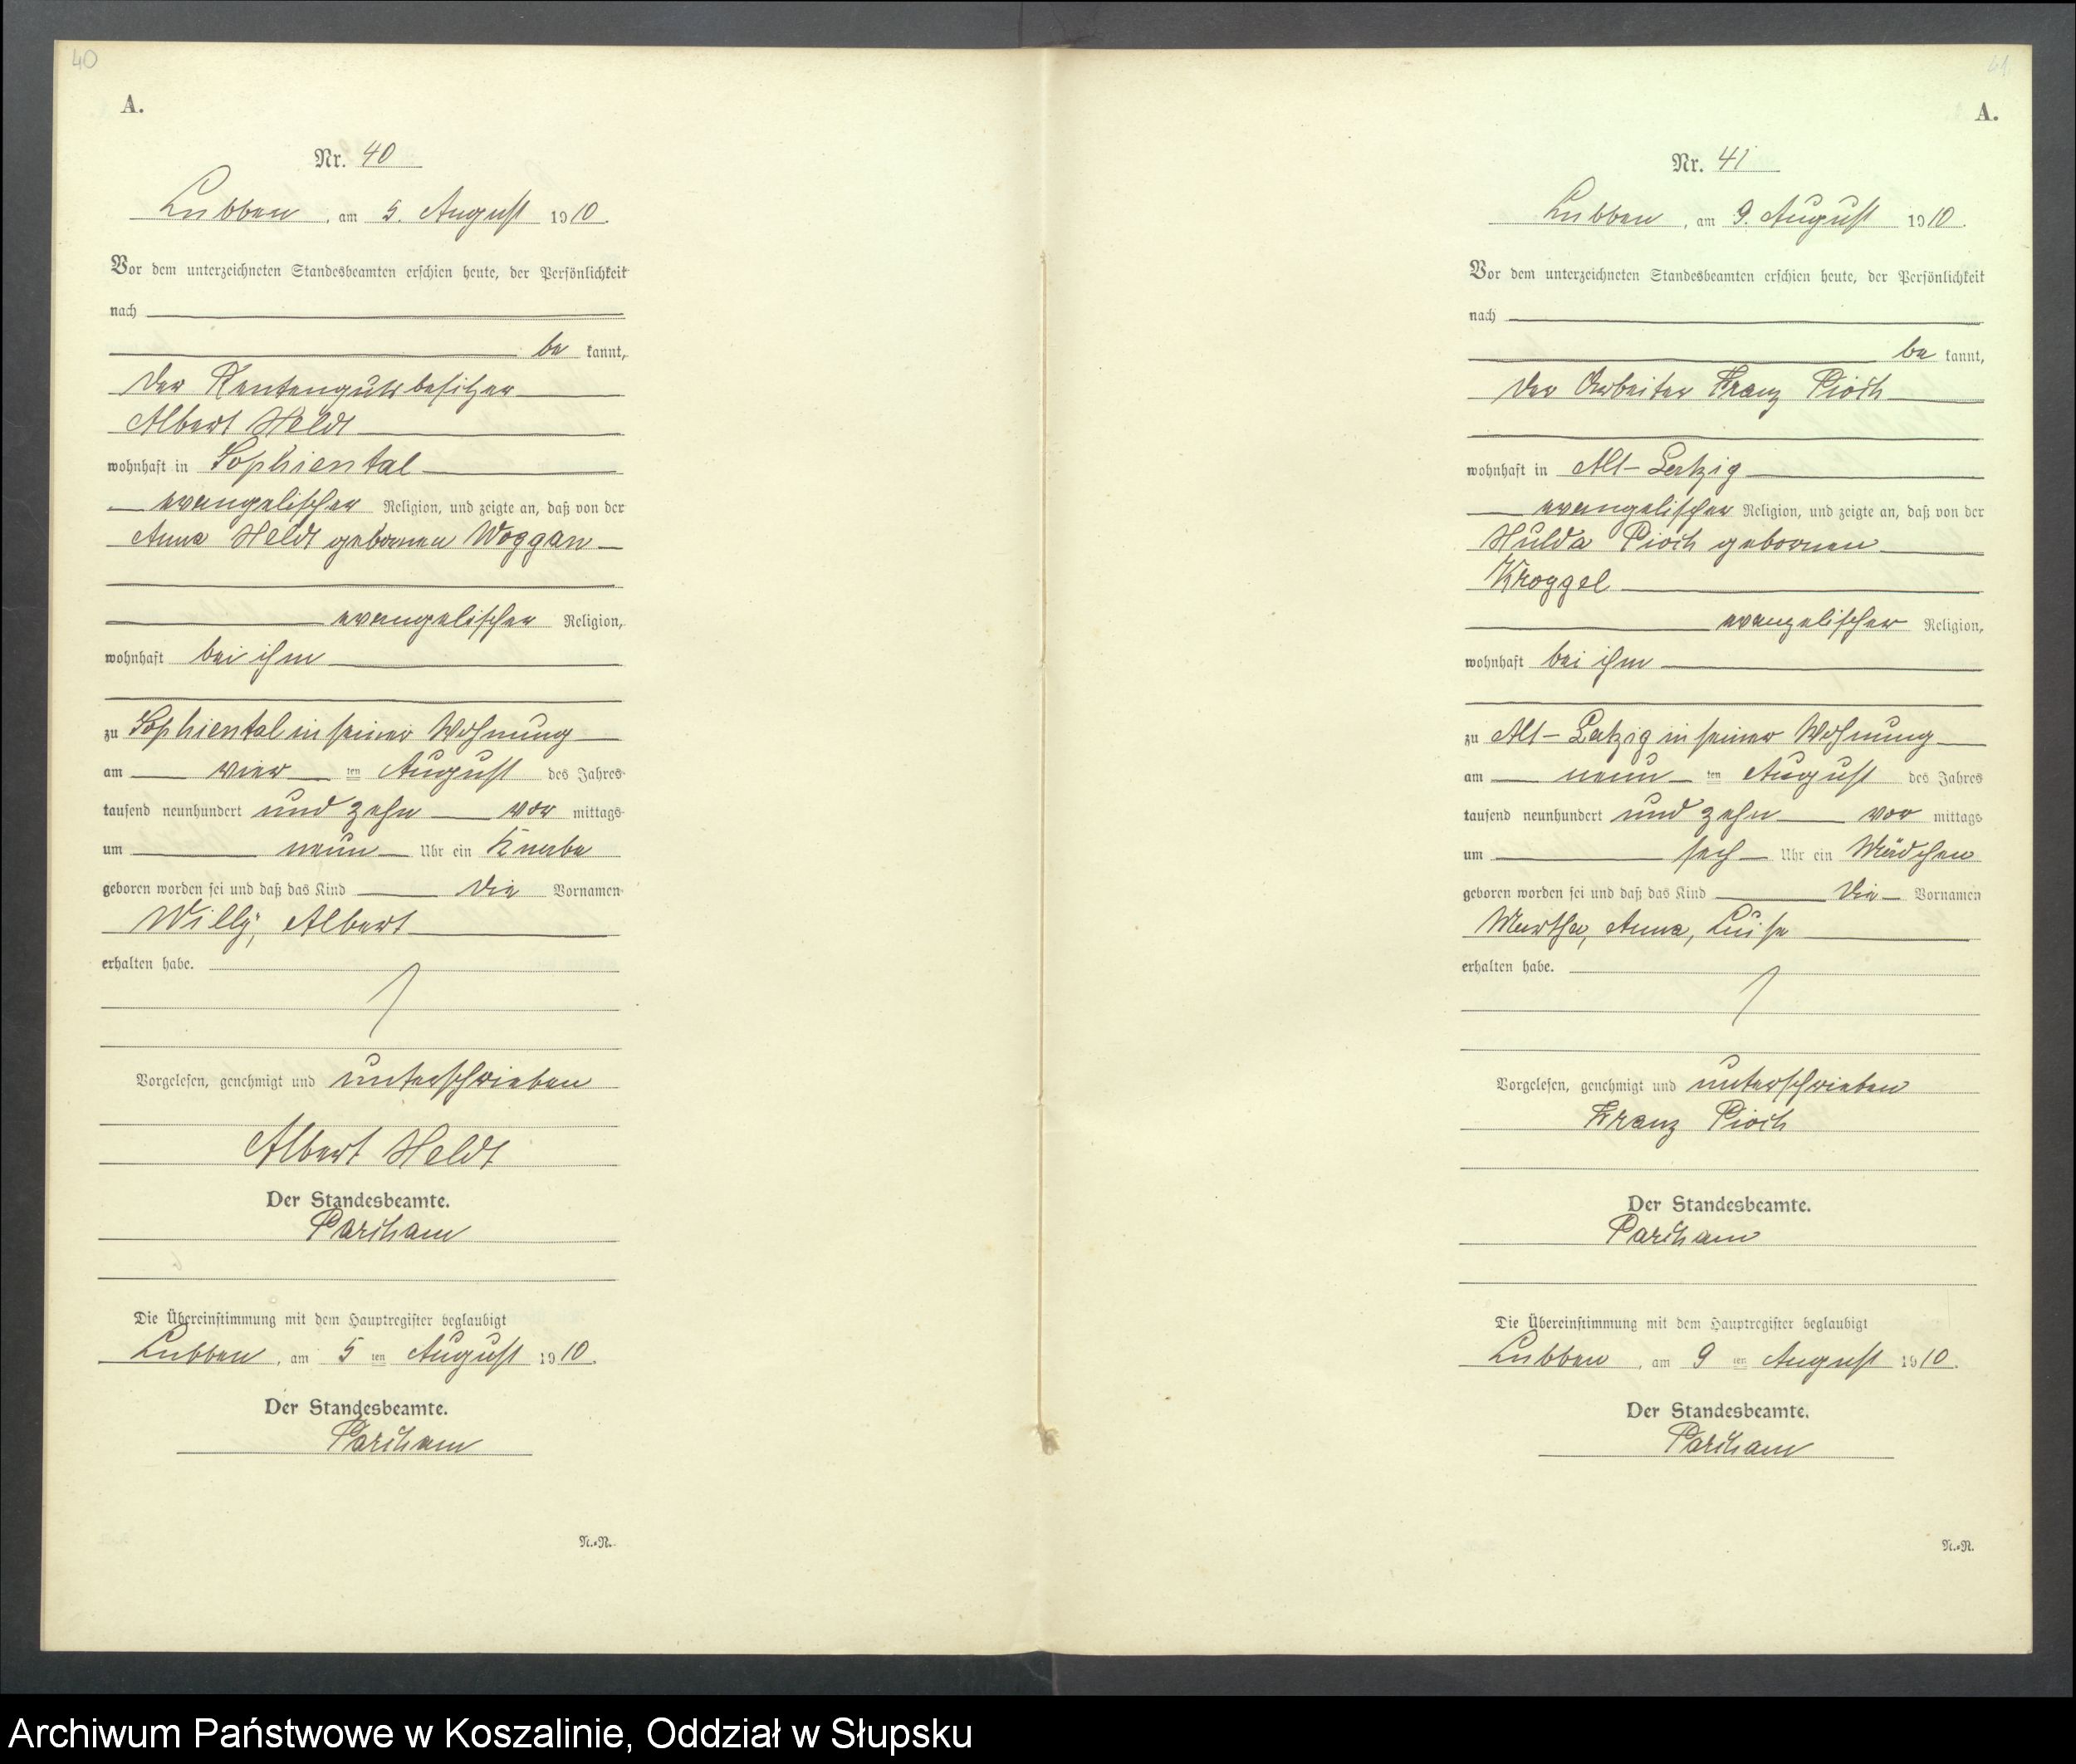 40
A.
Nr. 40
Lubben, am 5. August 1910.
Vor dem unterzeichneten Standesbeamten erschien heute, der Persönlichkeit
nach
be kannt,
der Rentengutsbesitzer
Albert Heldt
wohnhaft in Sophiental
evangelischer Religion, und zeigte an, daß von der
Anna Heldt gebornen Woggan
evangelischer Religion,
wohnhaft bei ihm
zu Sophiental in seiner Wohnung
am vier ten August des Jahres
tausend neunhundert und zehn vor mittags
um neun Uhr ein Knabe
geboren worden sei und daß das Kind die Vornamen
Willy, Albert
erhalten habe.
Vorgelesen, genehmigt und unterschrieben
Albert Heldt
Der Standesbeamte.
Parcham
Die Übereinstimmung mit dem Hauptregister beglaubigt
Lubben, am 5 ten August 1910.
Der Standesbeamte.
Parcham
N.=R.
41
A.
Nr. 41
Lubben, am 9. August 1910.
Vor dem unterzeichneten Standesbeamten erschien heute, der Persönlichkeit
nach
be kannt,
der Arbeiter Franz Pioch
wohnhaft in Alt-
evangelischer Religion, und zeigte an, daß von der
Hulda Pioch gebornen
Kroggel
evangelischer Religion,
wohnhaft bei ihm
zu Alt- in seiner Wohnung
am neun ten August des Jahres
tausend neunhundert und zehn vor mittags
um sech Uhr ein Mädchen
geboren worden sei und daß das Kind die Vornamen
Martha, Anna, Luise
erhalten habe.
Vorgelesen, genehmigt und unterschrieben
Franz Pioch
Der Standesbeamte.
Parcham
Die Übereinstimmung mit dem Hauptregister beglaubigt
Lubben, am 9 ten August 1910.
Der Standesbeamte.
Parcham
N.=R.
Archiwum Państwowe w Koszalinie, Oddział w Słupsku